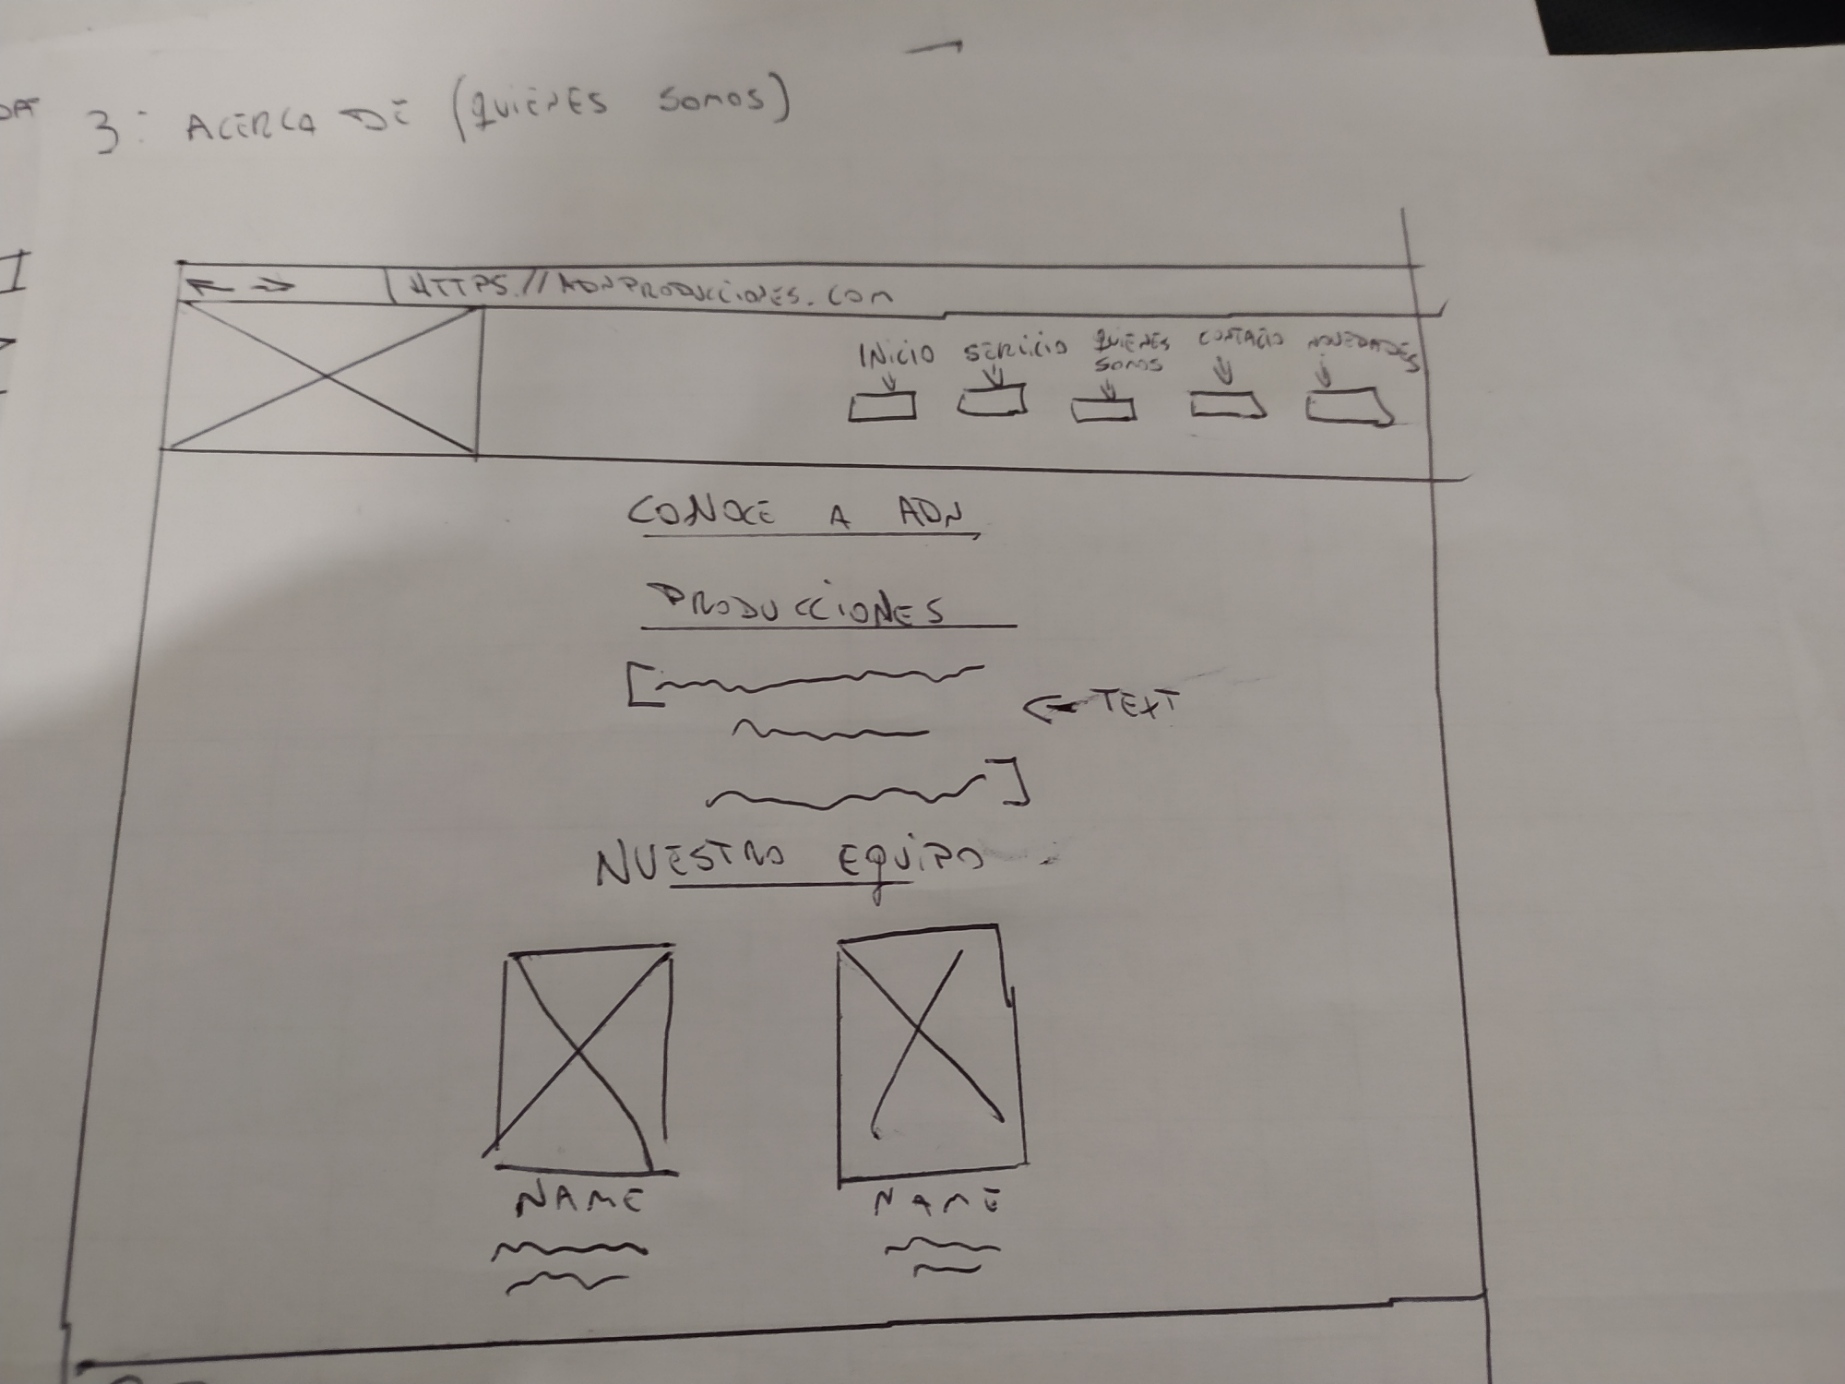 3: ACERCA DE (QUIENES SOMOS)
HTTPS://ADNPRODUCCIONES.COM
INICIO SERVICIO QUIENES SOMOS CONTACTO NOVEDADES
CONOCE A ADN
PRODUCCIONES
← TEXT
NUESTRO EQUIPO
NAME NAME